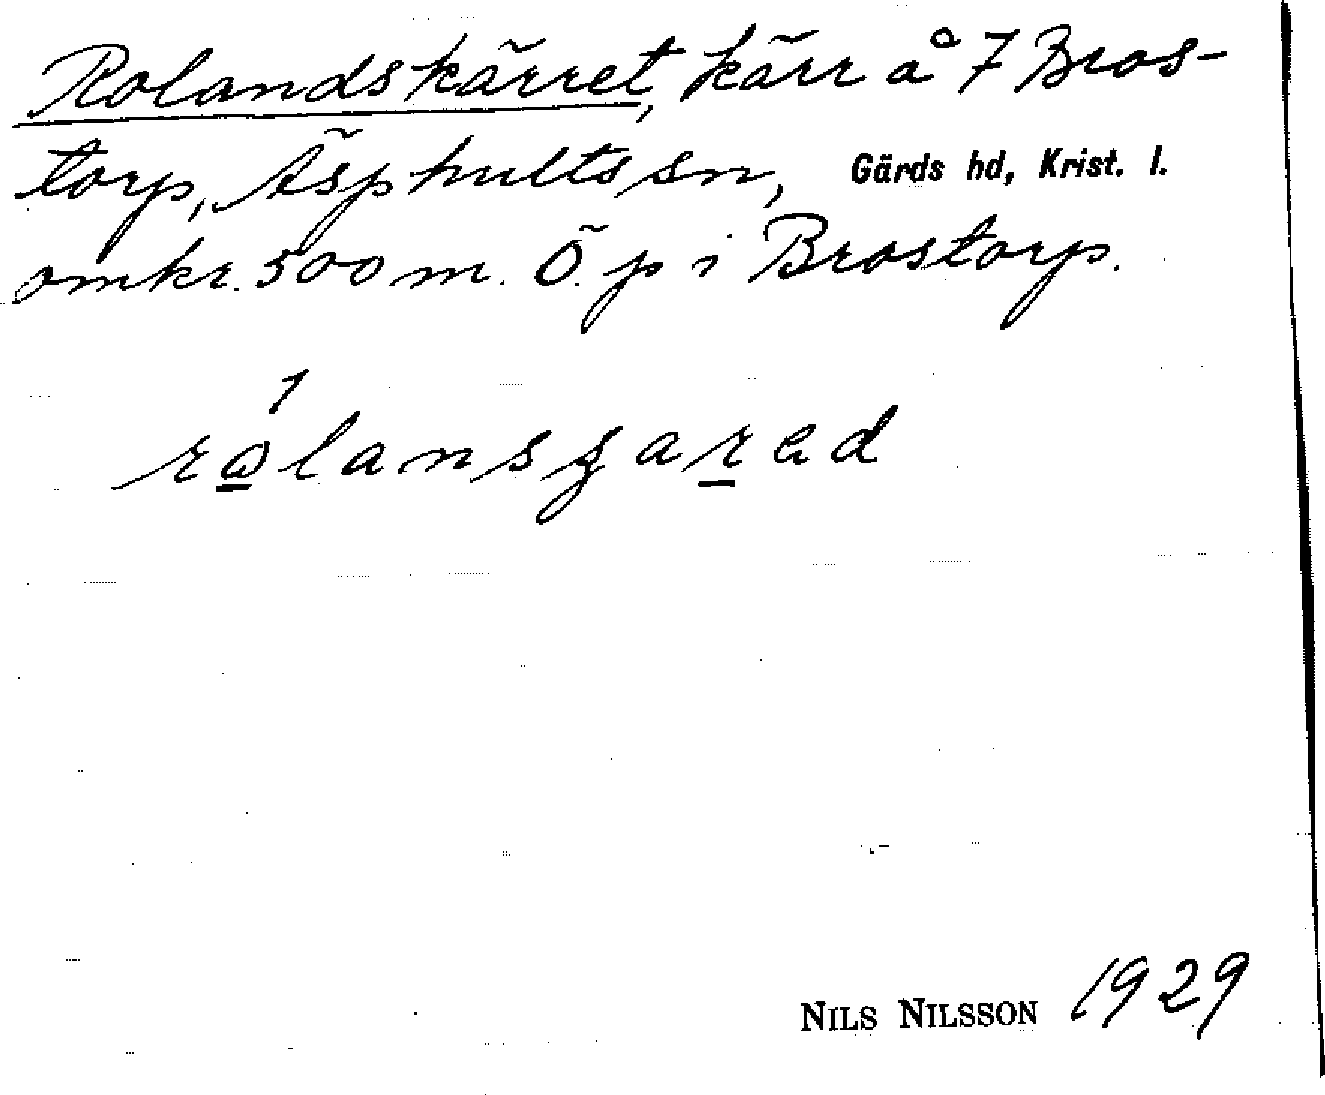 Rolandskärret, kärr å 7 Bros-
torp, Äsphults sn, Gärds hd, Krist. l.
omkr. 500 m. Ö. p i Brostorp.
NILS NILSSON 1929